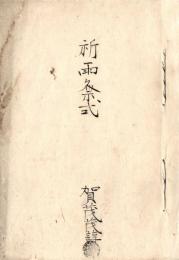 祈雨祭式
賀茂茂